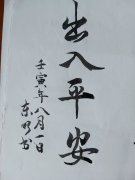 出入平安
壬寅年八月一日
东明书